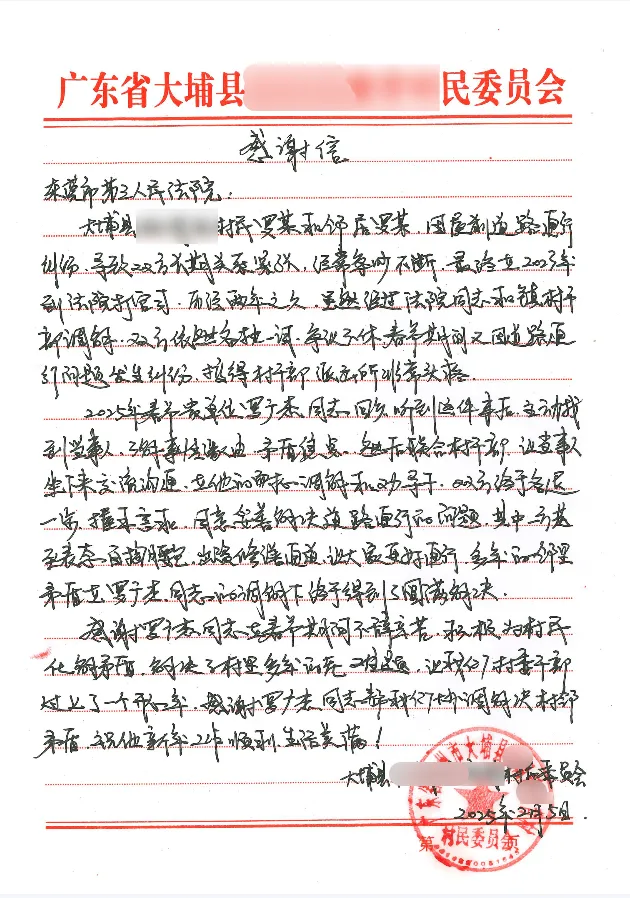 广东省大埔县 民委员会
感谢信
东莞市第三人民法院:
大埔县 村民罗某和邻居罗某,因屋前道路通行
纠纷,导致双方长期关系紧张,经常争吵不断,最终在2023年
到法院打官司,历经两年之久,虽然经过法院同志和镇村干
部调解,双方依然各执一词,争议不休,春节期间又因道路通
行问题发生纠纷,搞得村干部 派出所非常头痛。
2025年春节贵单位罗广杰同志回乡听到这件事后,主动找
到当事人,了解事情缘由、矛盾焦点,然后联合村干部,让当事人
坐下来交流沟通,在他的耐心调解和劝导下,双方终于各退
一步,握手言和,同意妥善解决道路通行的问题,其中一方甚
至表态自掏腰包,出资修路通道,让大家更好通行,多年的邻里
矛盾在罗广杰同志的调解下终于得到了圆满解决。
感谢罗广杰同志在春节期间不辞辛苦,积极为村民
化解矛盾,解决了村里多年的老 难题,让我们村委干部
过上了一个开心年,感谢罗广杰同志帮我们协调解决村邻
矛盾,祝他新年工作顺利,生活美满!
大埔县 村民委员会
2025年2月5日
第 页
州市大埔县
村民委员会